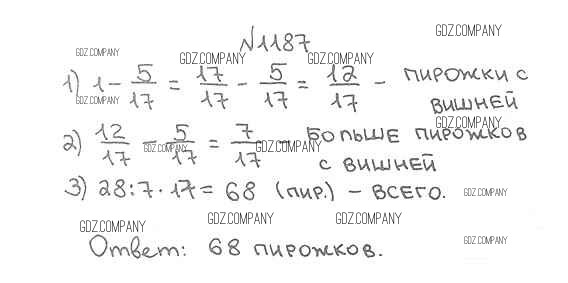 GDZ.COMPANY
№1187
GDZ.COMPANY
GDZ.COMPANY GDZ.COMPANY
1) 1 - 5/17 = 17/17 - 5/17 = 12/17 - пирожки с
GDZ.COMPANY
вишней
GDZ.COMPANY
2) 12/17 - 5/17 = 7/17 - больше пирожков
GDZ.COMPANY GDZ.COMPANY
с вишней
3) 28:7·17= 68 (пир.) - всего.
GDZ.COMPANY
GDZ.COMPANY GDZ.COMPANY GDZ.COMPANY
Ответ: 68 пирожков.
GDZ.COMPANY